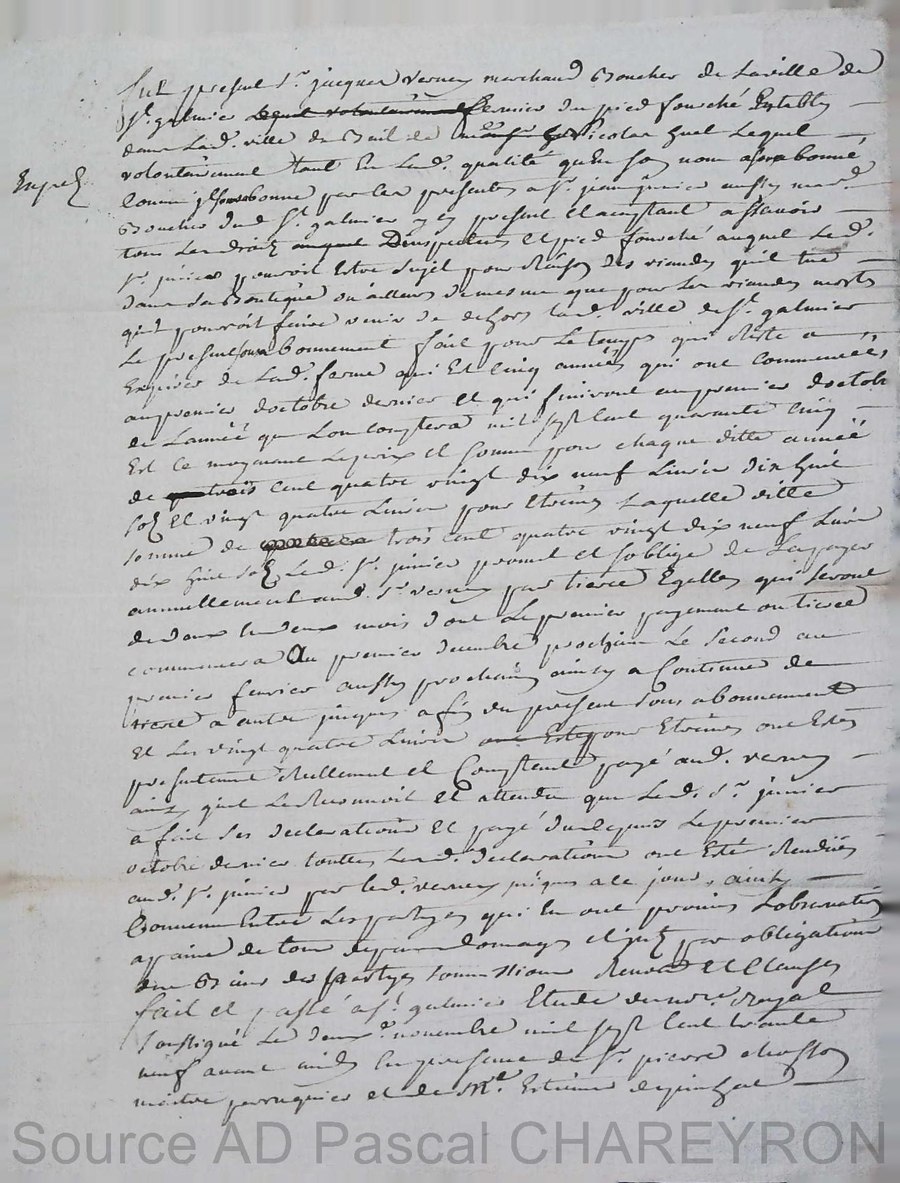 fut present Sr. jacques verney marchand Boucher de Laville de
St. galmier fermier du pied fourché Establis
dans Lad. ville de Bail de nicolas huel Lequel
Expedié
volontairement tant En Lad. qualité qu'En son nom a sousabonné
Comme jl sousabonne par les presentes a Sr. jean junier aussy mard.
Boucher dud. St. galmier jcy present et acceptant assavoir
tous Les droits Dinspecteurs et pied fourché auquel Led.
Sr. junier pourroit Estre Sujet pour Raison des viandes qu'il tue
dans Sa Boutique ou ailleurs de mesme que pour Les viandes mortes
qu'il pourroit faire venir de dehors lad. ville de St. galmier
Le present sous abonnement fait pour Le temps qui Reste a
Expirer de Lad. ferme qui Est Cinq années qui ont Commencées
au premier doctobre dernier et qui finiront au premier doctobre
de Lannéé que Lon Comptera mil sept Cent quarante Cinq
Est Ce moyenant Le prix et Somme pour chaque ditte annéé
de trois Cent quatre vingt dix neuf Livres dix huit
Sols et vingt quatre Livres pour Etrennes Laquelle ditte
Somme de trois Cent quatre vingt dix neuf Livres
dix huit sols Led. Sr. junier promet et soblige de La payer
annuellement aud. Sr. verney par tierce Egalles qui seront
de deux En deux mois dont Le premier payement ou tierce
commencera Au premier decembre prochain Le Second au
premier fevrier aussy prochain ainsy a Continuer de
tierce a autre jusques a fin du present Sous abonnement
Et Les vingt quatre Livres pour Etrennes ont Estés
presentement Réellement et Comptant payé aud. verney
ainsy quil Le Reconnoit Et attendu que Led. Sr. junier
a fait Ses declarations Et payé depuis Le premier
octobre dernier touttes Lesd. declarations ont Eté Rendües
aud. Sr. junier par led. verney jusques a Ce jour, ainsy
Convenu Entre Les partyes qui En ont promis Lobservation
a paine de tous depans domages et jnts. par obligation
des Biens des partyes Soumissions Renon. Et Clauses
fait et passé a St. galmier Etude du nore. Royal
Soussigné Le deux novembre mil sept Cent trante
neuf avant midy En presence de Sr. pierre chasson
maitre perruquier et de Mr. Estienne depinhac
Source AD Pascal CHAREYRON